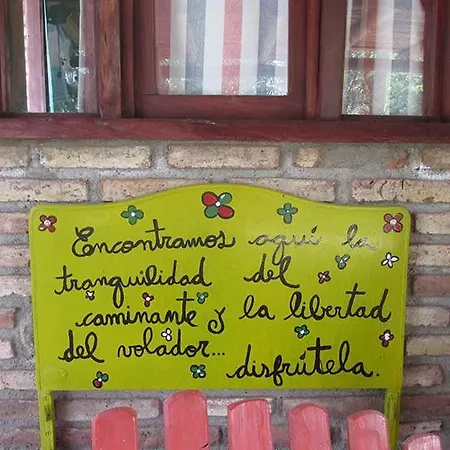 Encontramos aquí la
tranquilidad del
caminante y la libertad
del volador...
disfrútela.